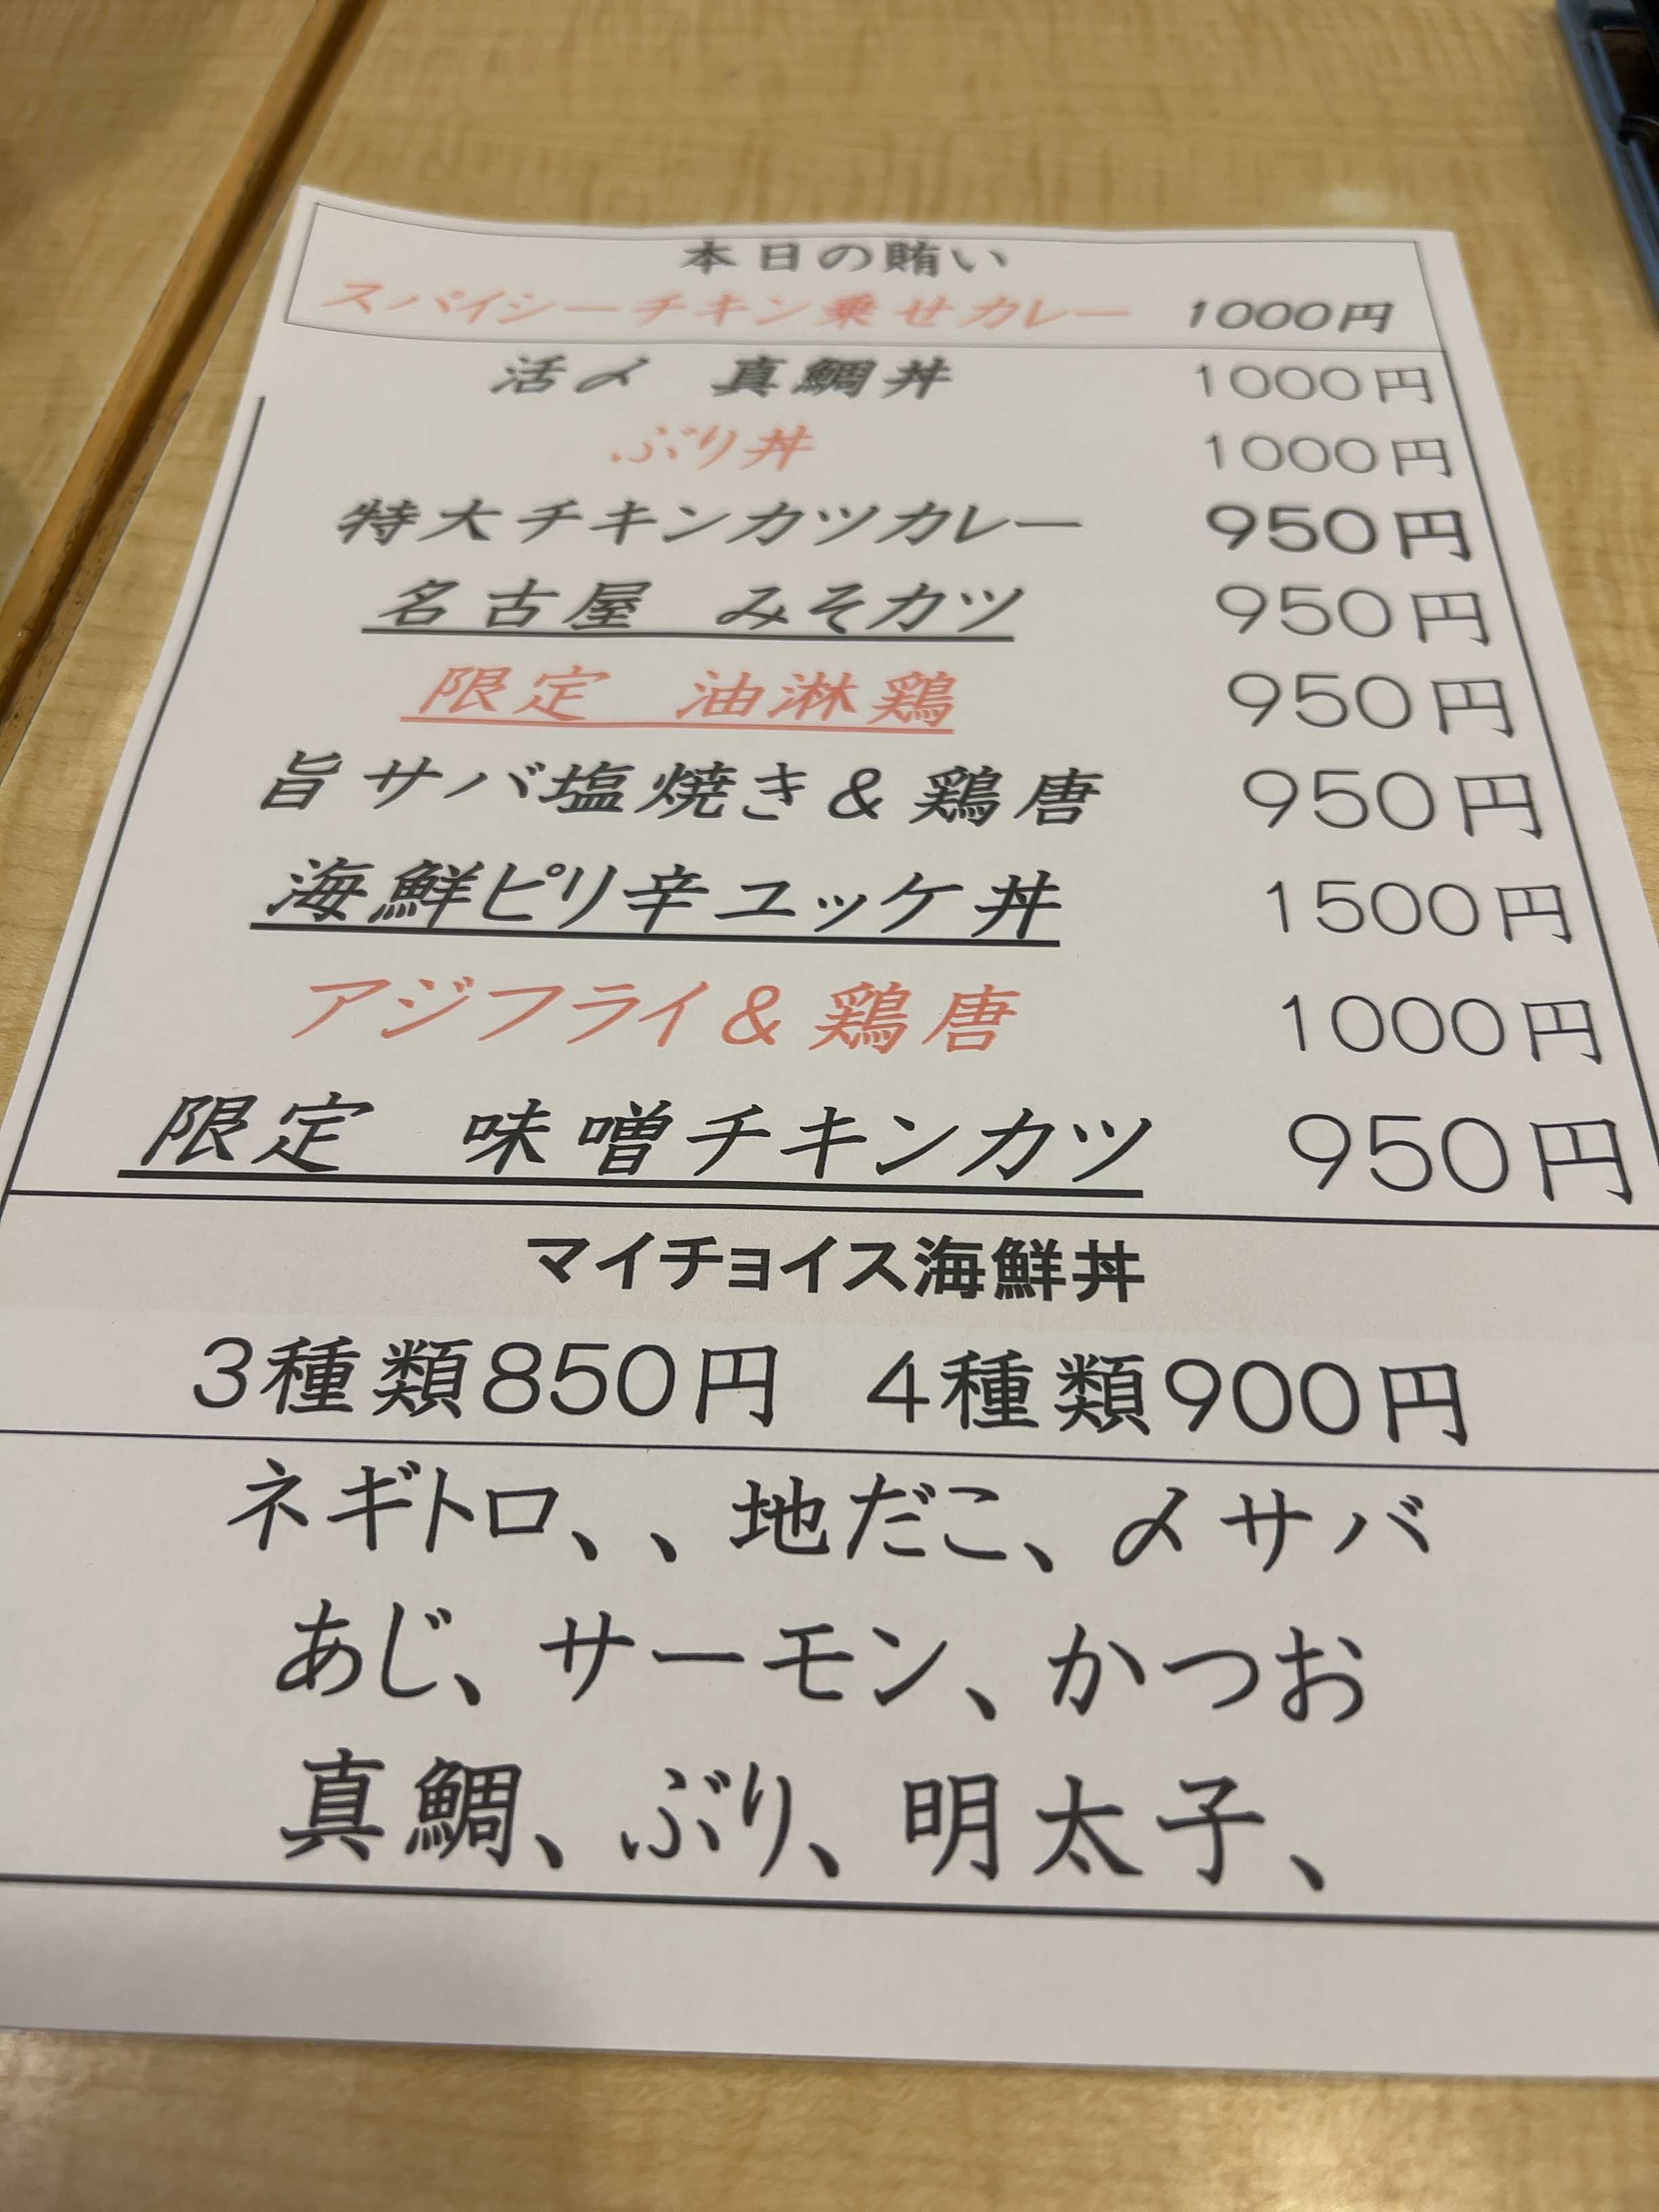 本日の賄い
スパイシーチキン乗せカレー 1000円
活〆 真鯛丼 1000円
ぶり丼 1000円
特大チキンカツカレー 950円
名古屋 みそカツ 950円
限定 油淋鶏 950円
旨サバ塩焼き&鶏唐 950円
海鮮ピリ辛ユッケ丼 1500円
アジフライ&鶏唐 1000円
限定 味噌チキンカツ 950円
マイチョイス海鮮丼
3種類850円 4種類900円
ネギトロ、、地だこ、〆サバ
あじ、サーモン、かつお
真鯛、ぶり、明太子、